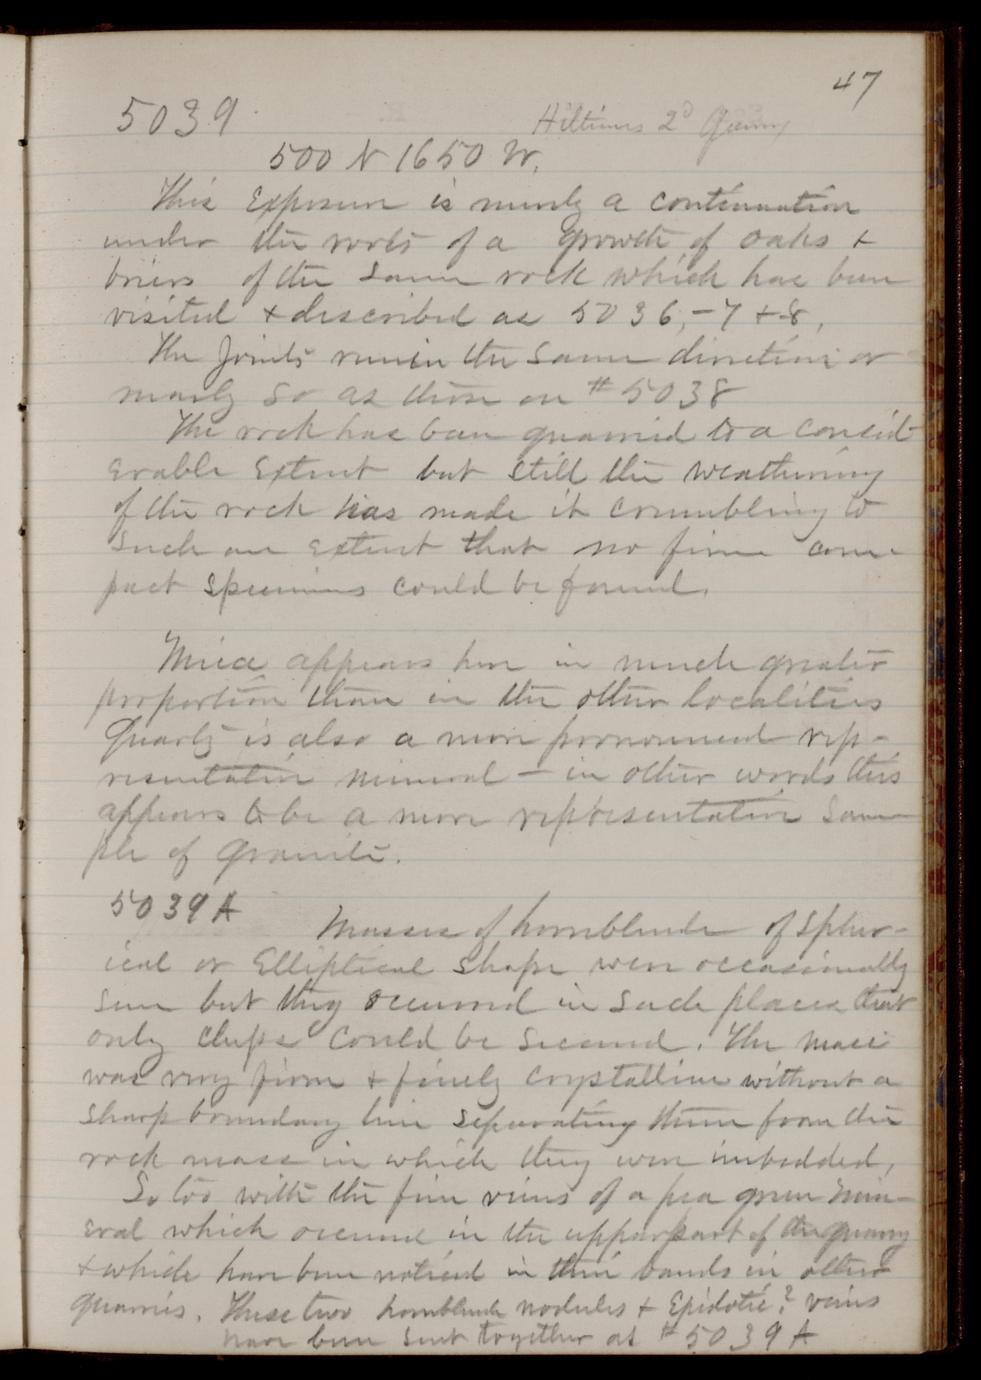 47
5039
2d Quarry
500 N 1650 W.
This Exposure is merely a continuation
under the roots of a growth of oaks +
briers of the same rock which has been
visited + described as 5036, -7 + -8.
The Joints run in the same direction or
nearly so as those on # 5038
The rock has been quarried to a consid-
erable Extent but still the weathering
of the rock has made it crumbling to
such an extent that no firm com-
pact specimens could be found.
Mica appears here in much greater
proportion than in the other localities
Quartz is also a more pronounced rep-
resentative mineral – in other words this
appears to be a more representative sam-
ple of granite.
5039 A
Masses of hornblende of spher-
ical or Elliptical shape were occasionally
seen but they occurred in such places that
only chips could be secured. The mass
was very firm + finely crystalline without a
sharp boundary line separating them from the
rock mass in which they were imbedded.
So too with the fine veins of a pea green min-
eral which occurred in the upper part of the quarry
+ which have been noticed in thin bands in other
quarries. These two hornblende nodules + Epidotic? veins
have been sent together as # 5039 A